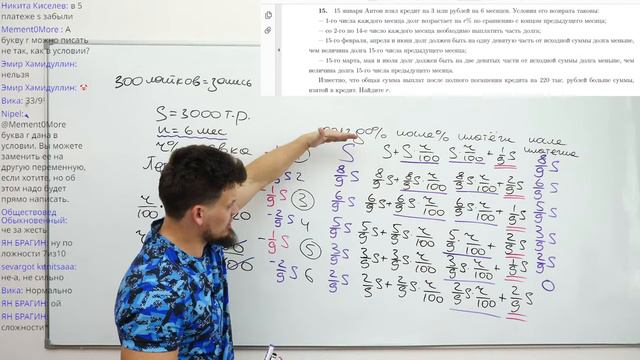 Никита Киселев: в 5
платеже s забыли
Mement0More : А
букву r можно писать
не так, как в условии?
Эмир Хамидуллин:
нельзя
Эмир Хамидуллин:
Вика: 33/9!
Nipel:
@Mement0More
буква r дана в
условии. Вы можете
заменить ее на
другую переменную,
если хотите, но об
этом надо будет
прямо написать.
Обществовед
Обыкновенный:
че за жесть
ЯН БРАГИН: ну по
ложности 7из10
sevargot
не-а, не сильно
Вика: Нормально
ЯН БРАГИН: ой
ЯН БРАГИН:
сложности*
15. 15 января Антон взял кредит на 3 млн рублей на 6 месяцев. Условия его возврата таковы:
— 1-го числа каждого месяца долг возрастает на r% по сравнению с концом предыдущего месяца;
— со 2-го по 14-е число каждого месяца необходимо выплатить часть долга;
— 15-го февраля, апреля и июня долг должен быть на одну девятую часть от исходной суммы долга меньше,
чем величина долга 15-го числа предыдущего месяца;
— 15-го марта, мая и июля долг должен быть на две девятых части от исходной суммы долга меньше, чем
величина долга 15-го числа предыдущего месяца.
Известно, что общая сумма выплат после полного погашения кредита на 220 тыс. рублей больше суммы,
взятой в кредит. Найдите r.
300 лайков = запись
S = 3000 т.р.
n = 6 мес
r%
r/100
после % платёж после платежа
S S + S r/100 S r/100 + 1/9 S 8/9 S
2 8/9 S 8/9 S + 8/9 S r/100 8/9 S r/100 + 2/9 S 6/9 S
1/9 S 3 6/9 S 6/9 S + 6/9 S r/100 6/9 S r/100 + 1/9 S 5/9 S
-2/9 S 4 5/9 S 5/9 S + 5/9 S r/100 5/9 r/100 + 2/9 S
1/9 S 5
-2/9 S 6 2/9 S 2/9 S + 2/9 S r/100 2/9 S r/100 + 2/9 S 0